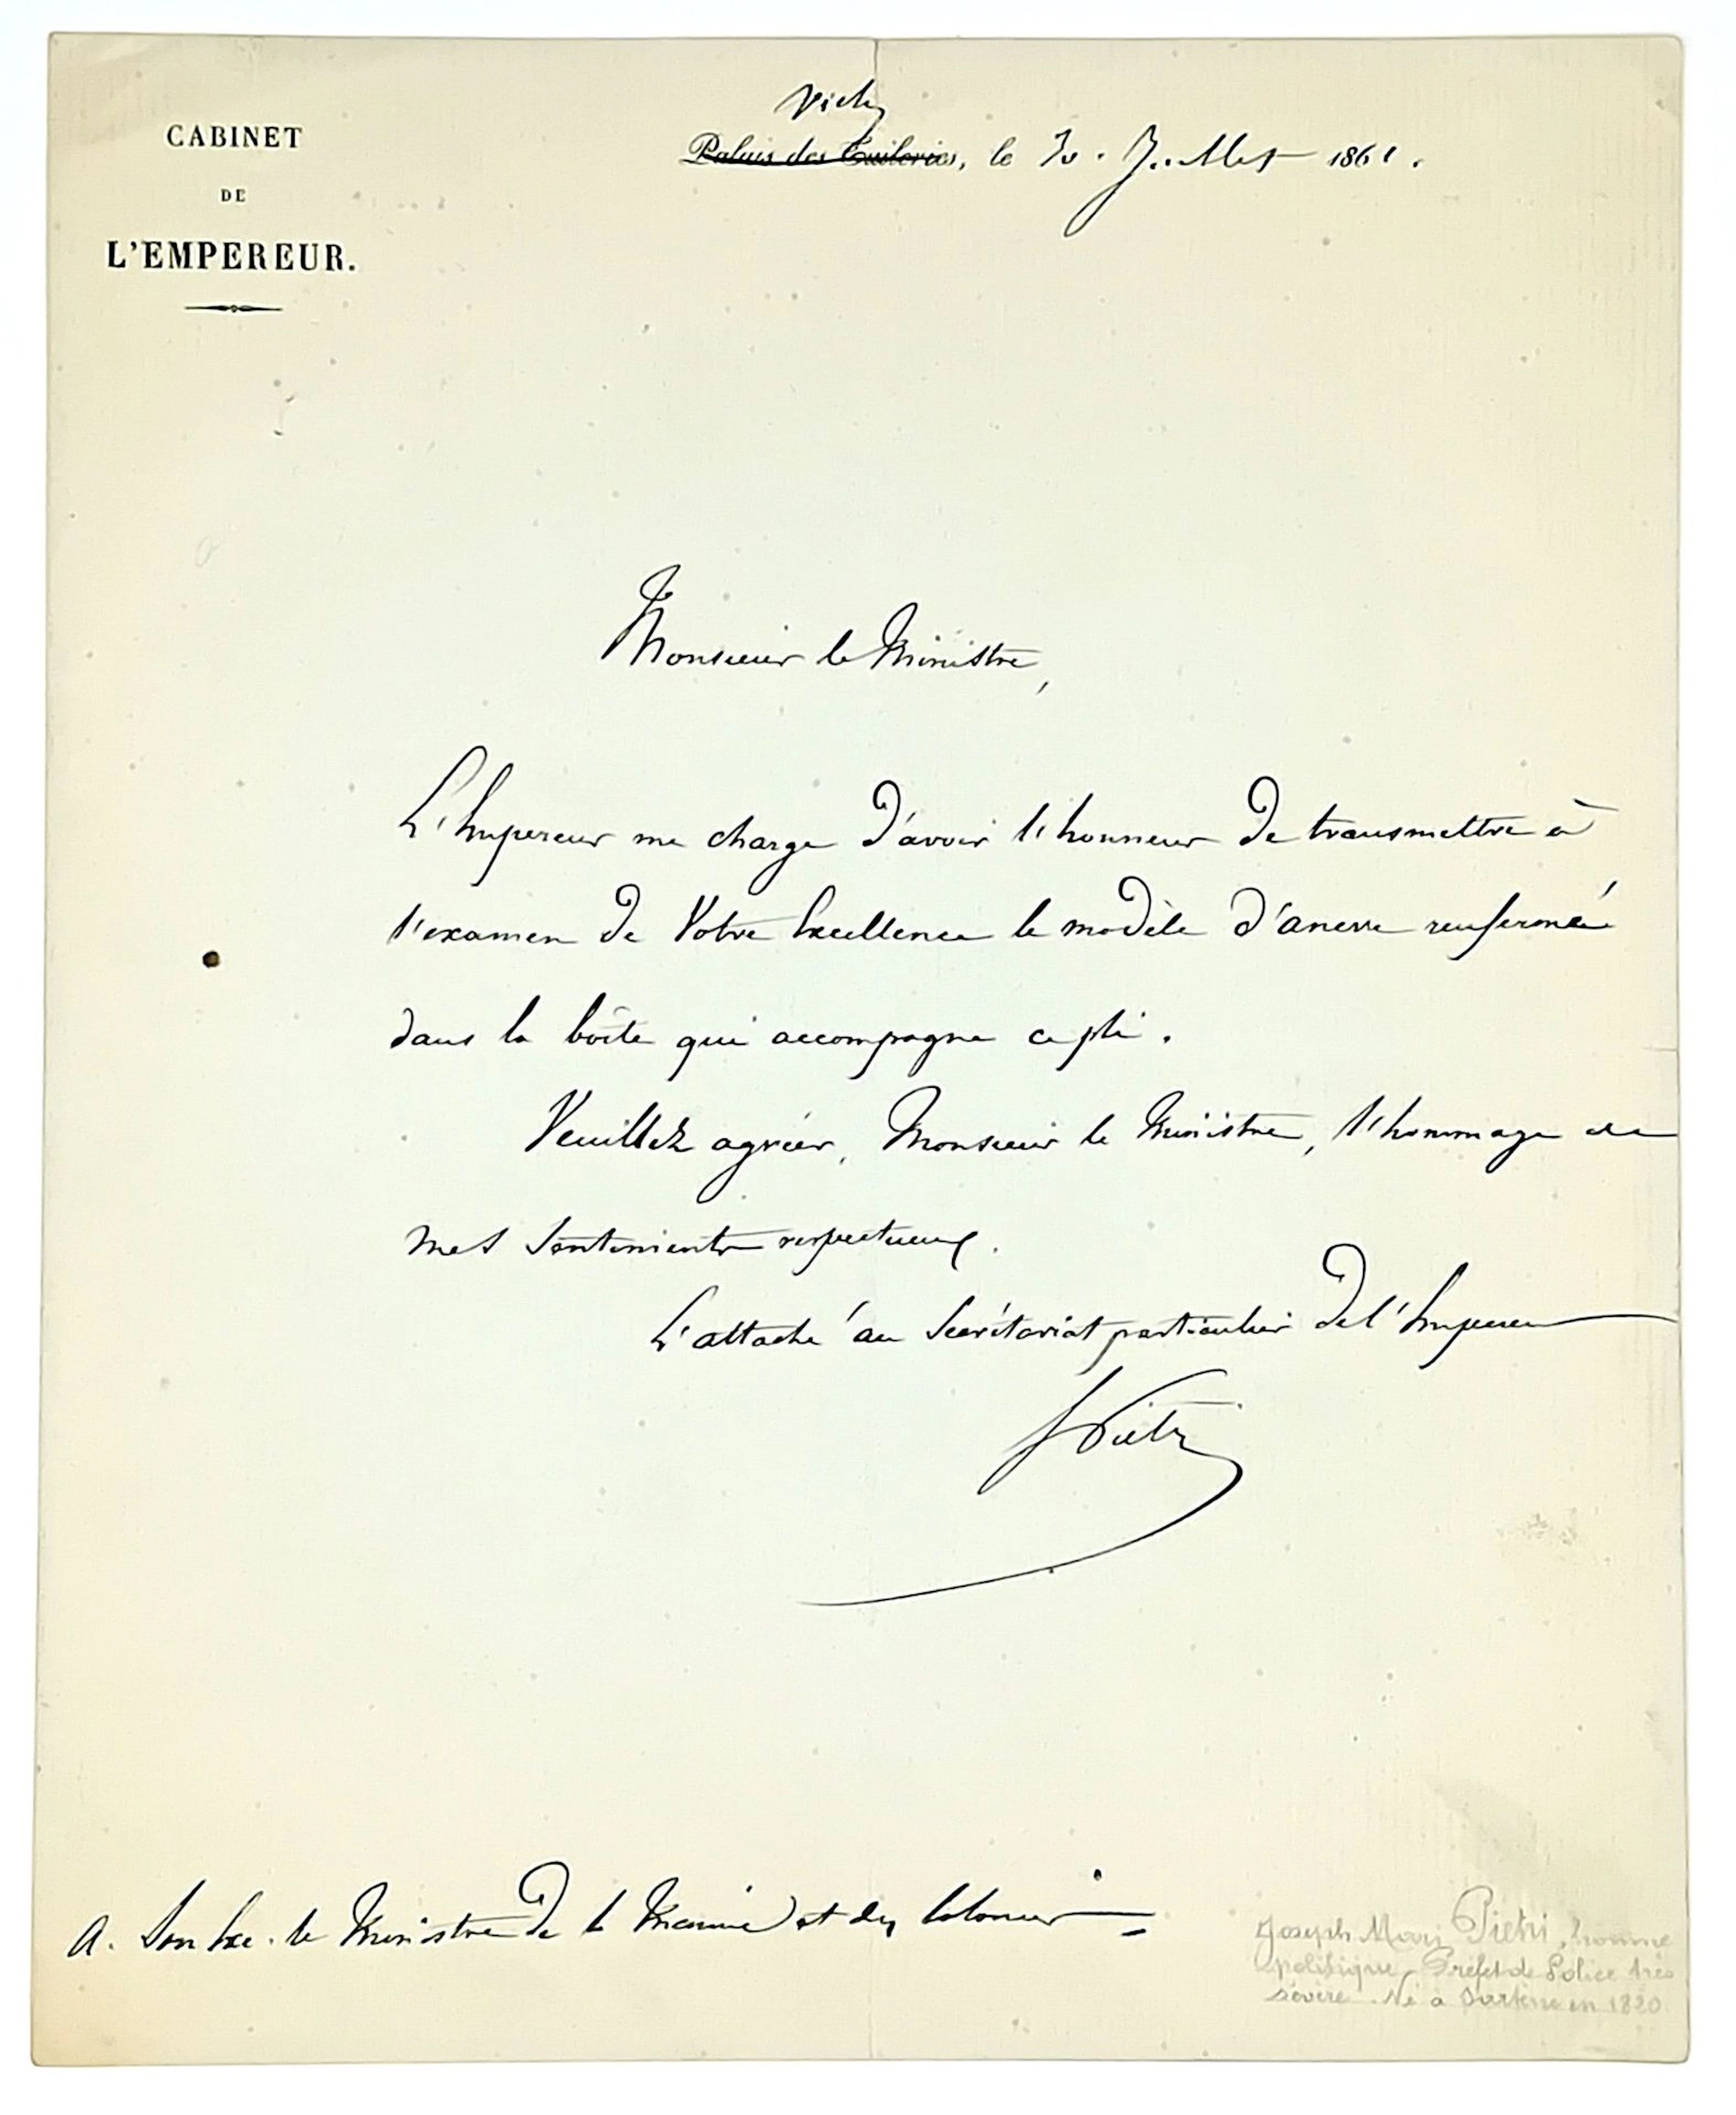 CABINET
DE
L'EMPEREUR.
Vichy
Palais des Tuileries, le 30. Juillet 1861.
Monsieur le Ministre,
L'Empereur me charge d'avoir l'honneur de transmettre à
l'examen de Votre Excellence le modèle d'ancre renfermé
dans la boîte qui accompagne ce pli.
Veuillez agréer, Monsieur le Ministre, l'hommage de
mes sentiments respectueux.
L'attaché au Secrétariat particulier de l'Empereur
Pietri
A. Son Exc. le Ministre de la Marine et des Colonies
Joseph Marie Pietri, homme
politique, Préfet de Police très
sévère. Né à Sartène en 1820.